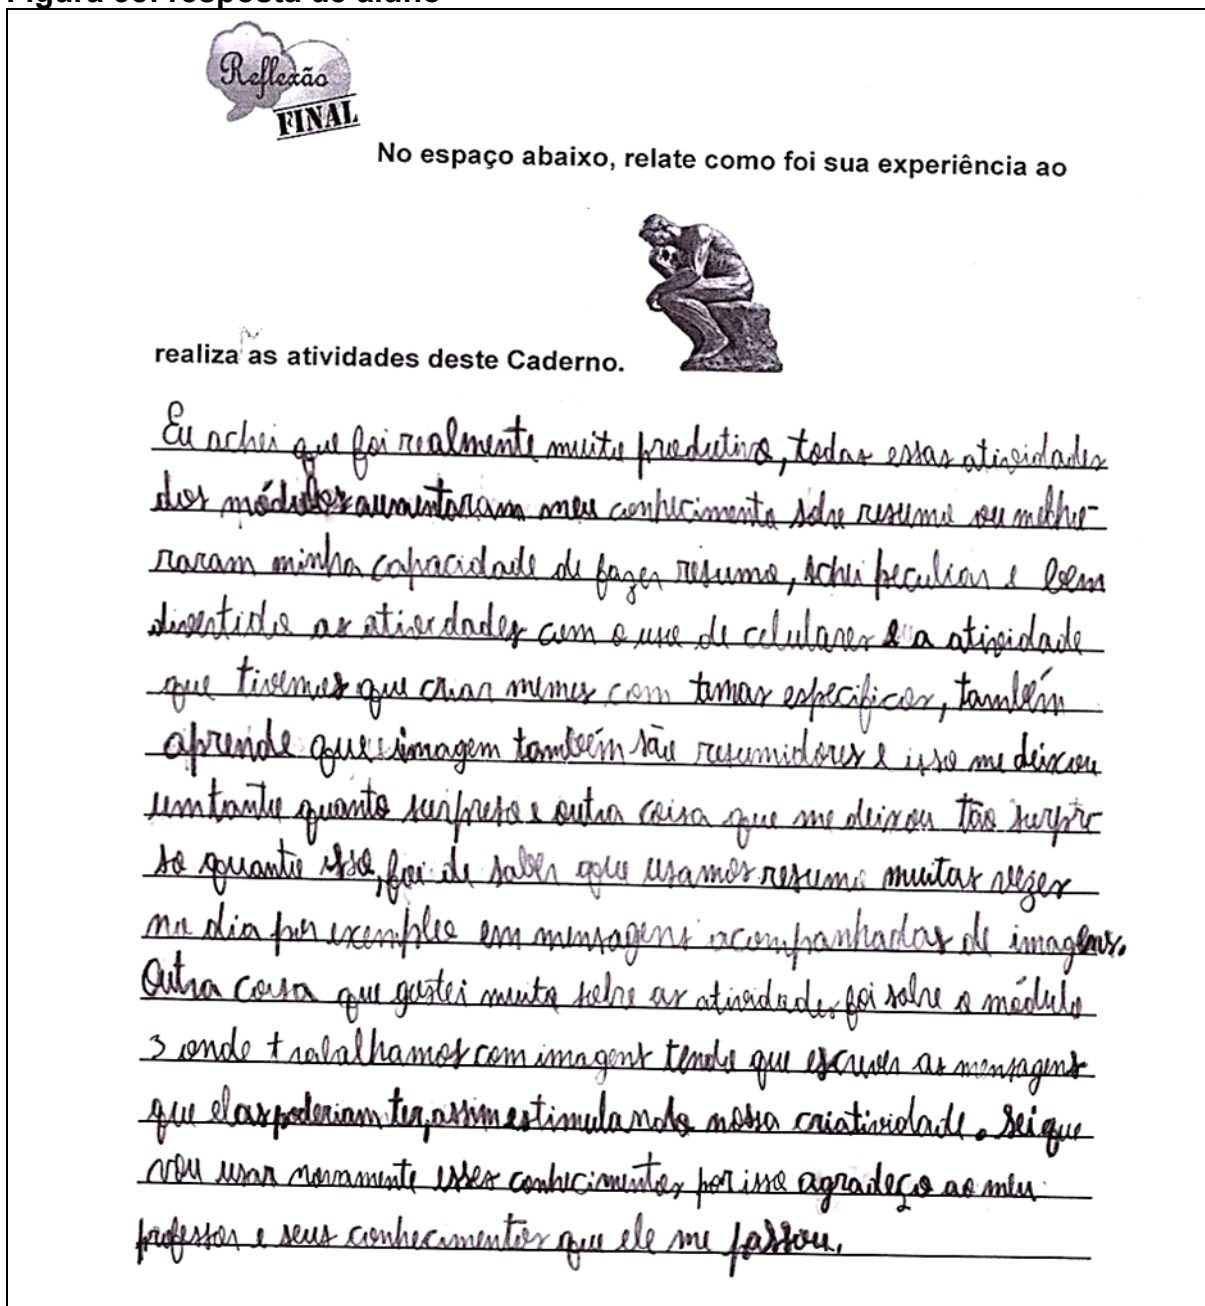 Reflexão
FINAL
No espaço abaixo, relate como foi sua experiência ao
realiza as atividades deste Caderno.
Eu achei que foi realmente muito produtivo, todas essas atividades
dos módulos aumentaram meu conhecimento sobre resumo ou melho-
raram minha capacidade de fazer resumo, achei peculiar e bem
divertido as atividades com o uso de celulares e a atividade
que tivemos que criar memes com temas especificos, também
aprende que imagem também são resumidores e isso me deixou
um tanto quanto surpreso e outra coisa que me deixou tão surpre
so quanto isso, foi de saber que usamos resumo muitas vezes
no dia por exemplo em mensagens acompanhadas de imagens.
Outra coisa que gostei muito sobre as atividades foi sobre o módulo
3 onde trabalhamos com imagens tendo que escrever as mensagens
que elas poderiam ter, assim estimulando nossa criatividade. Sei que
vou usar novamente esses conhecimentos por isso agradeço ao meu
professor e seus conhecimentos que ele me passou.